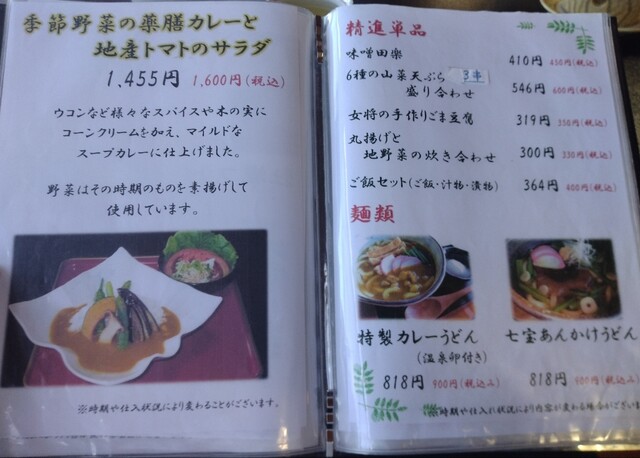 季節野菜の薬膳カレーと
地産トマトのサラダ
1,455円 1,600円(税込)
ウコンなど様々なスパイスや木の実に
コーンクリームを加え、マイルドな
スープカレーに仕上げました。
野菜はその時期のものを素揚げして
使用しています。
※時期や仕入状況により変わることがございます。
精進単品
味噌田楽 410円 450円(税込)
6種の山菜天ぷら
盛り合わせ 546円 600円(税込)
女将の手作りごま豆腐 319円 350円(税込)
丸揚げと
地野菜の炊き合わせ 300円 330円(税込)
ご飯セット(ご飯・汁物・漬物) 364円 400円(税込)
麺類
特製カレーうどん
(温泉卵付き)
818円 900円(税込み)
七宝あんかけうどん
818円 900円(税込み)
※時期や仕入れ状況により内容が変わる場合がございます